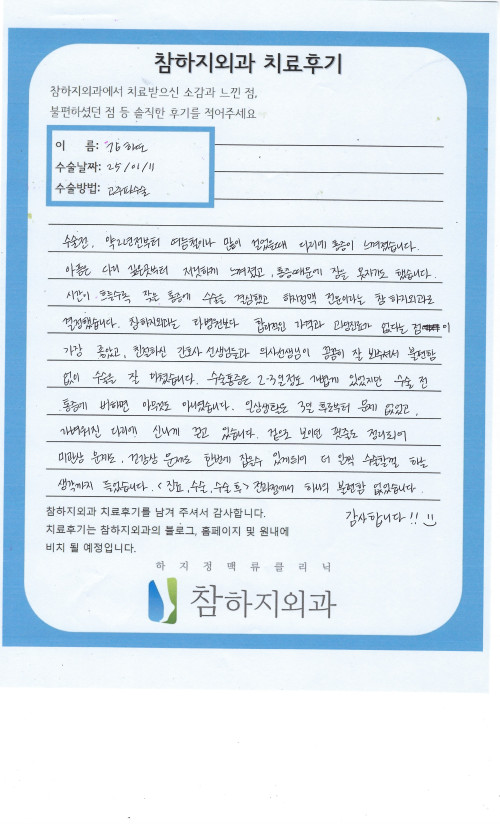 참하지외과 치료후기
참하지외과에서 치료받으신 소감과 느낀 점,
불편하셨던 점 등 솔직한 후기를 적어주세요
이 름:
수술날짜: 25/01/11
수술방법: 고주파수술
수술전, 약 2년전부터 여름철이나 많이 걸었을때 다리에 통증이 느껴졌습니다.
아픔은 다리 깊은곳부터 저릿하게 느껴졌고, 통증때문에 잠을 못자기도 했습니다.
시간이 흐를수록 잦은 통증에 수술을 결심했고 하지정맥 전문이라는 참하지외과로
결정했습니다. 참하지외과는 타병원보다 합리적인 가격과 과잉진료가 없다는 점이
가장 좋았고, 친절하신 간호사 선생님들과 의사선생님이 꼼꼼히 잘 봐주셔서 불편함
없이 수술을 잘 마쳤습니다. 수술통증은 2-3일정도 가볍게 있었지만 수술 전
통증에 비하면 아무것도 아니였습니다. 일상생활도 3일 후로부터 문제 없었고,
가벼워진 다리에 신나게 걷고 있습니다. 겉으로 보이던 핏줄도 정리되어
미관상 문제도, 건강상 문제도 한번에 잡을수 있게되어 더 일찍 수술할걸 하는
생각까지 들었습니다. <진료, 수술, 수술 후> 전과정에서 하나의 불편함 없었습니다.
감사합니다!!
참하지외과 치료후기를 남겨 주셔서 감사합니다.
치료후기는 참하지외과의 블로그, 홈페이지 및 원내에
비치 될 예정입니다.
하지정맥류클리닉
참하지외과